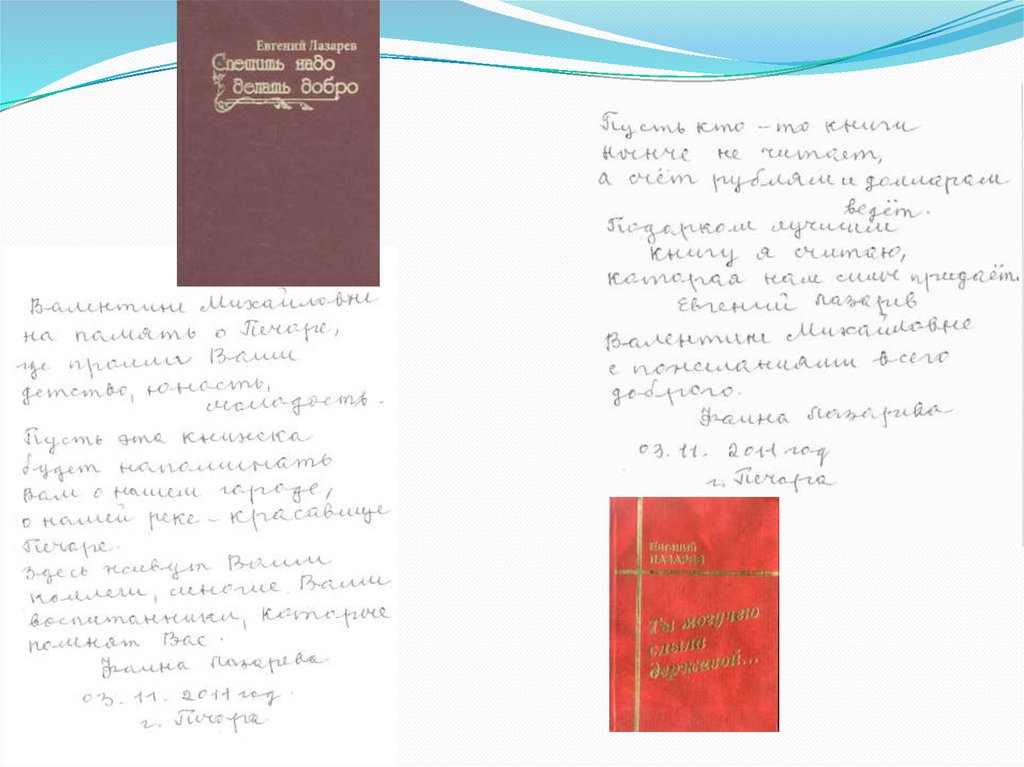 Евгений Лазарев
Спешить надо
делать добро
Валентине Михайловне
на память о Печоре,
где прошли Ваши
детство, юность,
молодость.
Пусть эта книжка
будет напоминать
Вам о нашем городе,
о нашей реке – красавице
Печоре.
Здесь живут Ваши
коллеги, многие Ваши
воспитанники, которые
помнят Вас.
Фаина Лазарева
03.11.2011 год.
г. Печора
Пусть кто-то книги
нынче не читает,
а счёт рублям и долларам
ведёт.
Подарком лучшим
книгу я считаю,
которая нам смысл придаёт.
Евгений Лазарев
Валентине Михайловне
с пожеланиями всего
доброго.
Фаина Лазарева
03.11. 2011 год
г. Печора
Евгений
ЛАЗАРЕВ
Ты могучею
слыла
державой...